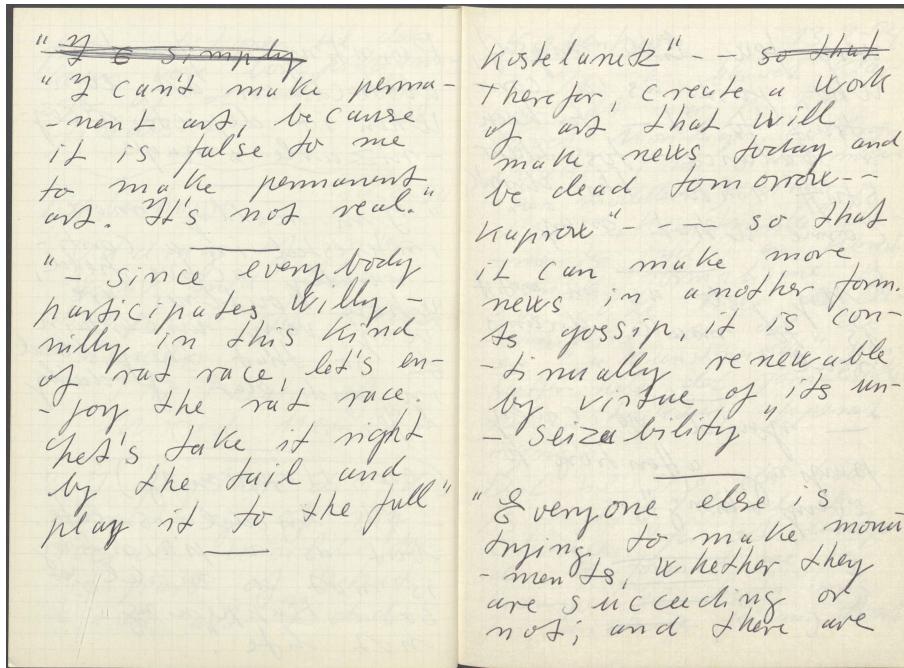 "I is simply
"I can't make perma-
-nent art, because
it is false to me
to make permanent
art. It's not real."
"– since everybody
participates willy-
nilly in this kind
of rat race, let's en-
-joy the rat race.
Let's take it right
by the tail and
play it to the full"
Kostelanetz" -- so that
therefor, create a work
of art that will
make news today and
be dead tomorrow--
Kaprow" --- so that
it can make more
news in another form.
As gossip, it is con-
-tinually renewable
by virtue of its un-
-seizability"
"Everyone else is
trying to make monu
-ments, whether they
are succeeding or
not; and there are